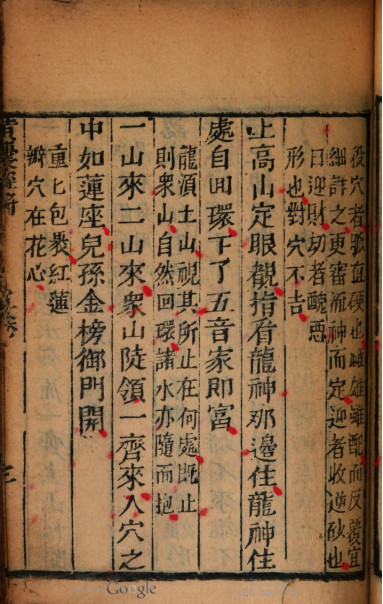 後穴者 直硬也 雄雌配而反覆宜
細詳之更審流神而定迎者收逆砂也
曰迎財切者醜惡
形也對穴不吉
上高山定眼觀指看龍神那邊住龍神住
處自田環下了五音家即富
龍湏土山視其所止在何處既止
則衆山自然回環諸水亦隨而抱
一山來二山來衆山陡領一齊來入穴之
中如蓮座兒孫金榜御門開
重匕包褁紅蓮
瓣穴在花心
Google